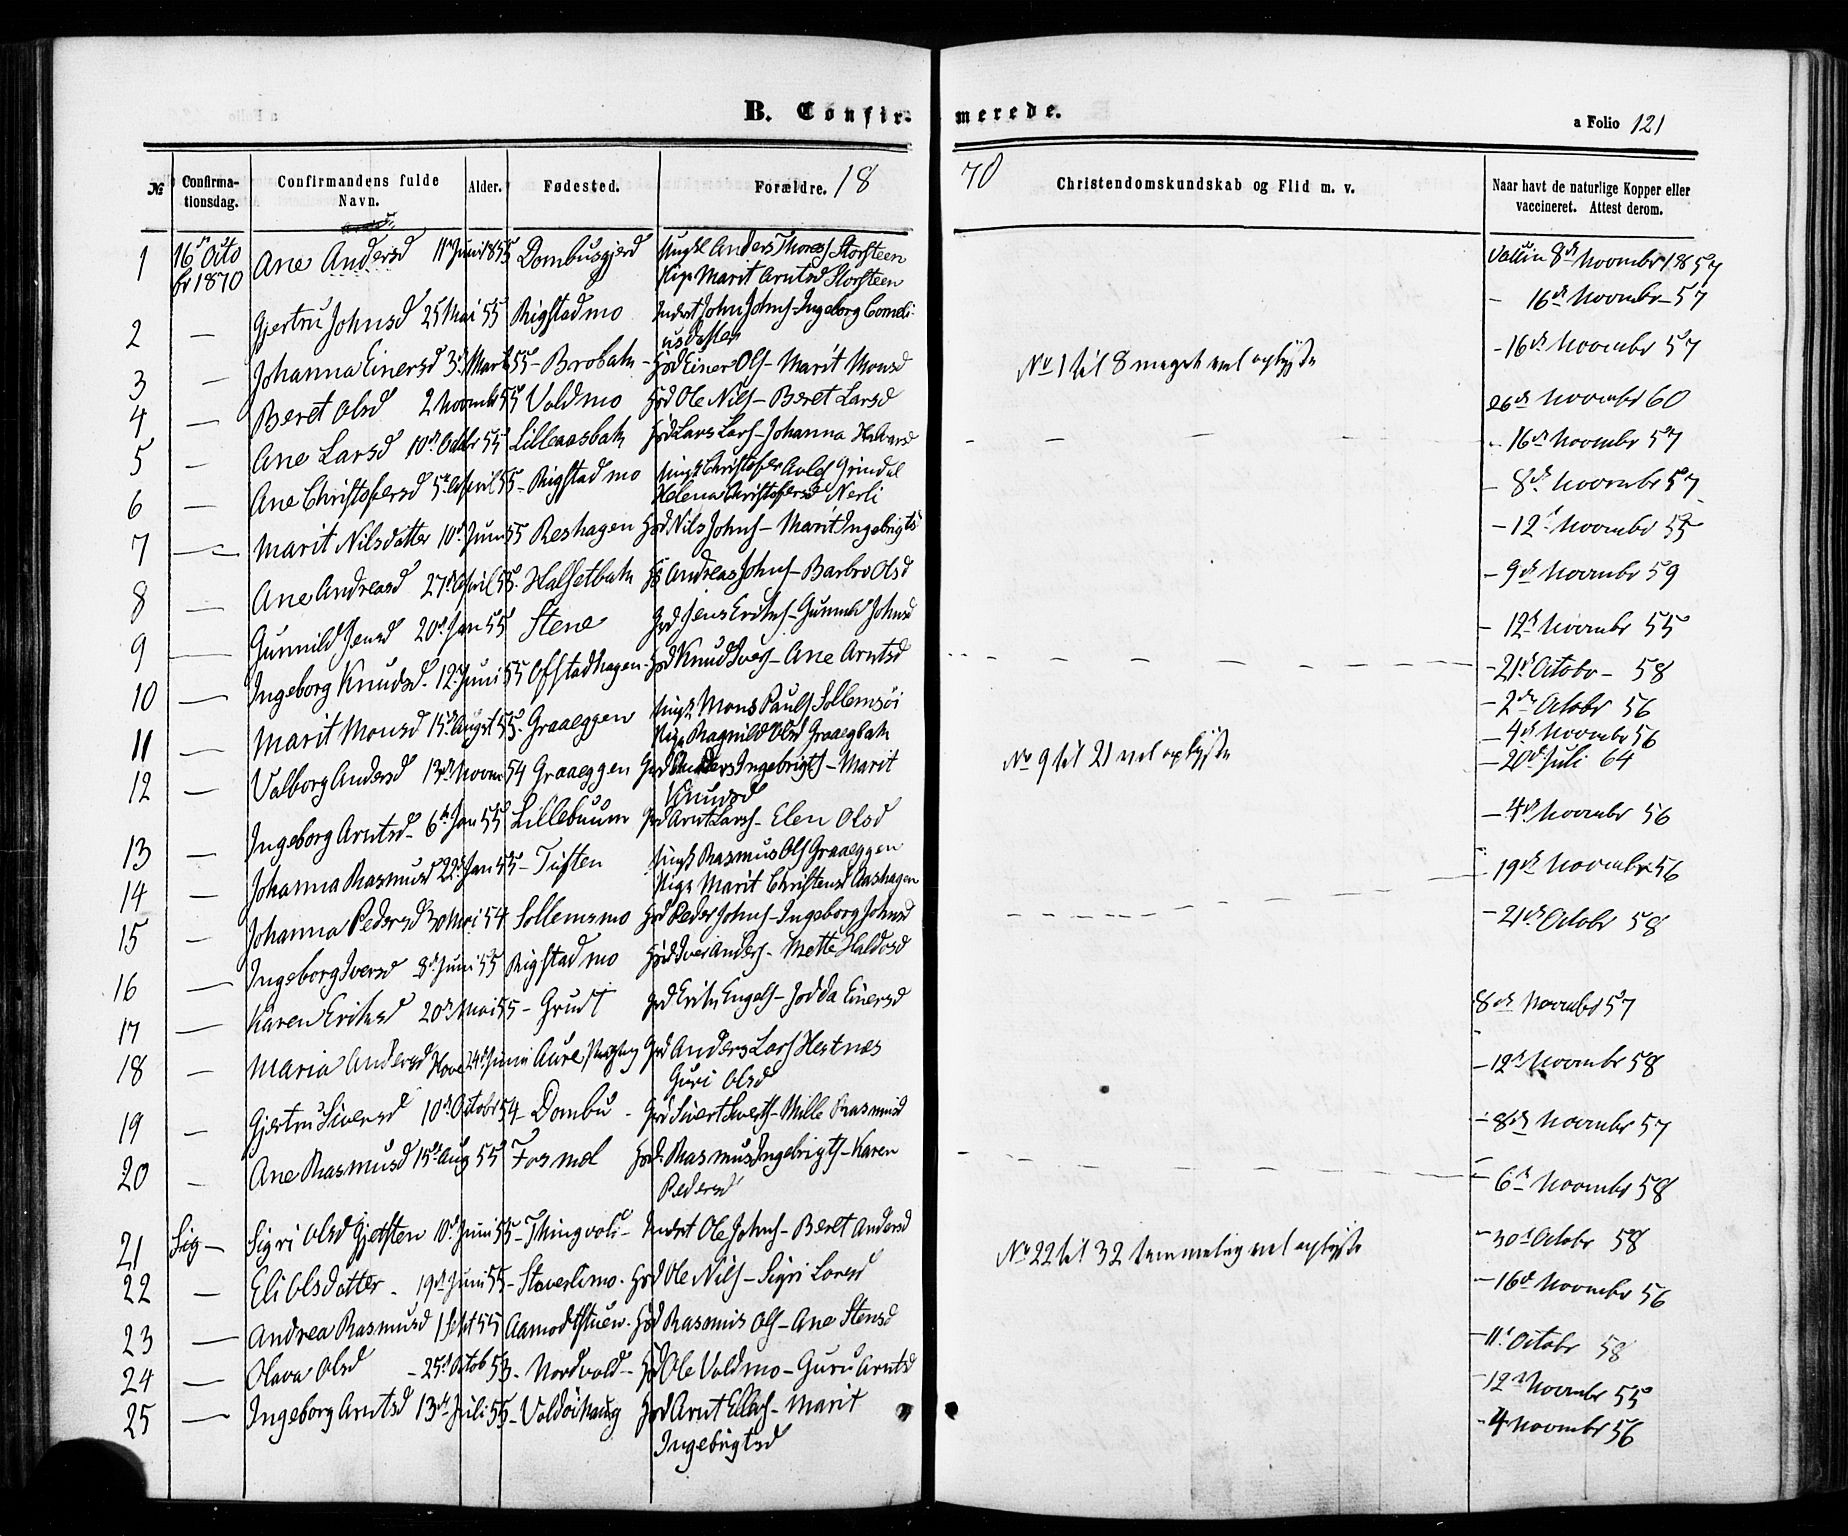 B. Confirmerede.
a Folio 121
№
Confirmationsdag.
Confirmandens fulde Navn.
Alder.
Fødested.
Forældre. 18
70
Christendomskundskab og Flid m. v.
Naar havt de naturlige Kopper eller vaccineret. Attest derom.
1 16 Octobr 1870 Ane Andersd 11 Juni 1855 Dombusgjerd Ungk Anders Thores Storsteen
Pige Marit Arntsd Storsteen
Vaccin 8de Novembr 1857
2 — Gjertru Johnsd 25 Mai 55 Rigstadmo Inderst John Johns - Ingeborg Corneliusdatter
- 16de Novembr 57
3 — Johanna Einersd 3d Marts 55 - Brobakn - Hsd Einer Ols - Marit Monsd
- 16de Novembr 57
No 1 til 8 meget vel oplyste
4 — Beret Olsd 2 Novembr 55 Voldmo Hsd Ole Nils - Beret Larsd
26de Novembr 60
5 — Ane Larsd 10d Octbr 55 Lilleaasbakn Hsd Lars Lars - Johanna Halvard
- 16de Novembr 57
6 — Ane Christofersd 5d April 55 - Rigstadmo Ungk Christofer Grindal
Helena Christofersd Nerli
- 8de Novembr 57
7 — Marit Nilsdatter 10d Juni 55 Reshagen Hsd Nils Johns - Marit Ingebrigts
- 12 Novembr 55
8 — Ane Andreasd 27d April 55. Halsetbakn Andreas Johns - Barbro Olsd
- 9de Novembr 59
9 — Gunnild Jensd 20d Jan 55 Stene Grd Jens Eriks - Gunnild Johnsd
- 12te Novembr 55
10 — Ingeborg Knudsd. 12d Juni 55 Ofstadhagen. Hsd Knud Ivers - Ane Arntsd
- 21d Octobr - 58
11 — Marit Monsd 15d August 55. Graaeggen Ungk Mons Pauls Sollemsöi
Pige Ragnild Olsd Graaegbakn
- 2den Octobr 56
- 4de Novembr 56
12 — Valborg Andersd 13d Novm 54 Graaeggen Grd Anders Ingebrigts - Marit
Knudsd
- 20d Juli 64
No 9 til 21 vel oplyste
13 — Ingeborg Arntsd - 6d Jan 55 Lillebuum Grd Arnt Lars - Elen Olsd
- 4de Novembr 56
14 — Johanna Rasmusd 22d Jan 55 - Tuften Ungk Rasmus Ols Graaeggen
Pige Marit Christensd Aashagen
- 19de Novembr 56
15 — Johanna Pedersd 30 Mai 54 Sollemsmo Hsd Peder Johns - Ingeborg Johnsd
- 21de Octobr 58
16 — Ingeborg Iversd 8d Juni 55 Rigstadmo Hsd Iver Anders - Mette Haldosd
17 — Karen Eriksd 20d Mai 55 - Grudt Grd Erik Engels - Jodda Einersd
8de Novembr 57
18 — Maria Andersd Hove 24d Juni Aure Grd Anders Lars Hestnes
Guri Olsd
- 12te Novembr 58
19 — Gjertru Siversd 10d Octobr 54 - Dombu - Grd Sivert Siverts - Mille Rasmusd
- 8de Novembr 57
20 — Ane Rasmusd 15d Aug 55 Fosmol Hsd. Rasmus Ingebrigts - Karen
Pedersd
- 6te Novembr 58
21 Sig — Sigri Olsd Gjelsten 10d Juni 55 - Thingvold - Inderst Ole Johns - Beret Andersd
- 30d Octobr 58
No 22 til 32 temmelig vel oplyste
22 — Eli Olsdatter - 19d Juni 55 - Staverlimo. Hsd Ole Nils - Sigri Larsd
- 16d Novembr 56
23 — Andrea Rasmusd 1 Sept 55 Aamodtstuen. Hsd Rasmus Ols - Ane Stensd
- 11 Octobr 58
24 — Olava Olsd - 25d Octob 53 - Nordvold - Hsd Ole Voldmo - Guru Arntsd
- 12te Novembr 55
25 — Ingeborg Arntsd 13d Juli 55 - Voldöihaug Hsd Arnt Ellefs - Marit
Ingebrigtsd
- 4 Novembr 56